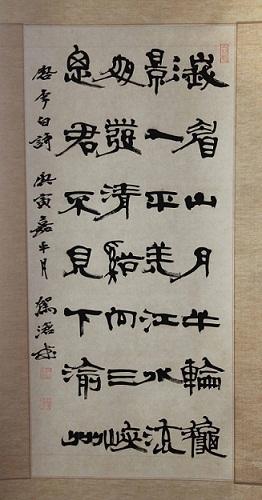 峨眉山月半輪龝
影入平羌江水流
夜發清谿向三峽
思君不見下渝州
唐李白詩 庚寅嘉平月